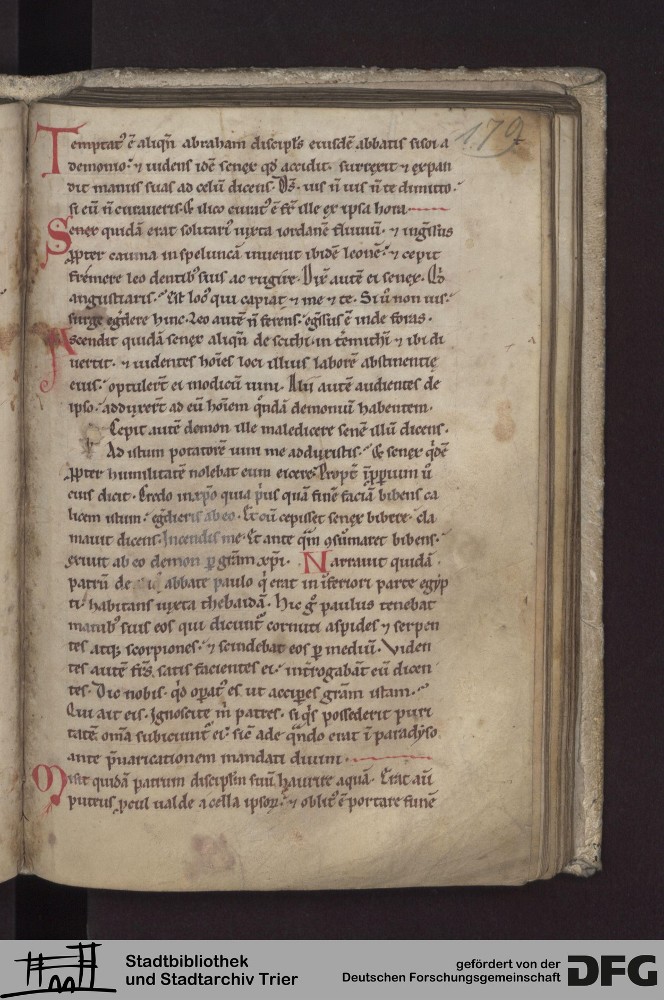 179
Temptat᷒ ē aliqn̄ abraham discipl᷒s eiusdē abbatis sisoi a
demonio. ⁊ uidens idē senex qđ accidit. surrexit ⁊ expan
dit manus suas ad celū dicens. Ds̄. uis n̄ uis n̄ te dimitto.
si eū n̄ curaueris. & ilico curat᷒ ē fr̄ ille ex ipsa hora
Senex quidā erat solitari᷒ iuxta iordanē fluuiū. ⁊ ingssus
ꝓpter cauma in speluncā inuenit ibidē leonē. ⁊ cepit
fremere leo dentib᷒ suis ac rugire. Dix̄ autē ei senex. Qđ
angustiaris. Est loc᷒ qui capiat ⁊ me ⁊ te. Si ū non uis.
surge egđere hinc. Leo autē n̄ ferens. egssus ē inde foras.
Ascendit quidā senex aliqn̄ de scithi. in ⁊ ibi di
uertit. ⁊ uidentes hoīes loci illius laborē abstinentię
eius. optulert̄ ei modicū uini. Alii autē audientes de
ipso. adduxert̄ ad eū hoīem qndā demoniū habentem.
Cepit autē demon ille maledicere senē illū dicens.
Ad istum potatorē uini me adduxistis. & senex qdē
ꝓpter humilitatē nolebat eum eicere. Propt̄ ū
eius dicit. Credo in xp̄o quia pri᷒ quā finē faciā bibens ca
licem istum. egđieris ab eo. Et cū cepisset senex bibere. cla
mauit dicens. Incendis me. Et ante qm̄ ꝯsumaret bibens.
exiuit ab eo demon ꝑ grām xp̄i. Narrauit quidā
patrū de abbate paulo q̇ erat in īferiori parte egyp
ti. habitans iuxta thebaidā. Hic gͦ paulus tenebat
manib᷒ suis eos qui dicunt̄ cornuti aspides ⁊ serpen
tes atq; scorpiones. ⁊ scindebat eos ꝑ mediū. Viden
tes autē frs̄. satis facientes ei. introgabāt eū dicen
tes. Dic nobis. qđ opat᷒ es. ut acciꝑes grām istam.
Qui ait eis. Ignoscite m̄ patres. si q̇s possederit puri
tatē. om̄a subiciunt̄ ei. sic̄ ade qn̄do erat ī paradyso
ante p̄uaricationem mandati diuini.
Misit quidā patrum discipl̄m suū haurire aquā. Erat aū
puteus ꝓcul ualde a cella ipsoꝝ. ⁊ oblit᷒ ē portare funē
Stadtbibliothek
und Stadtarchiv Trier
gefördert von der
Deutschen Forschungsgemeinschaft
DFG